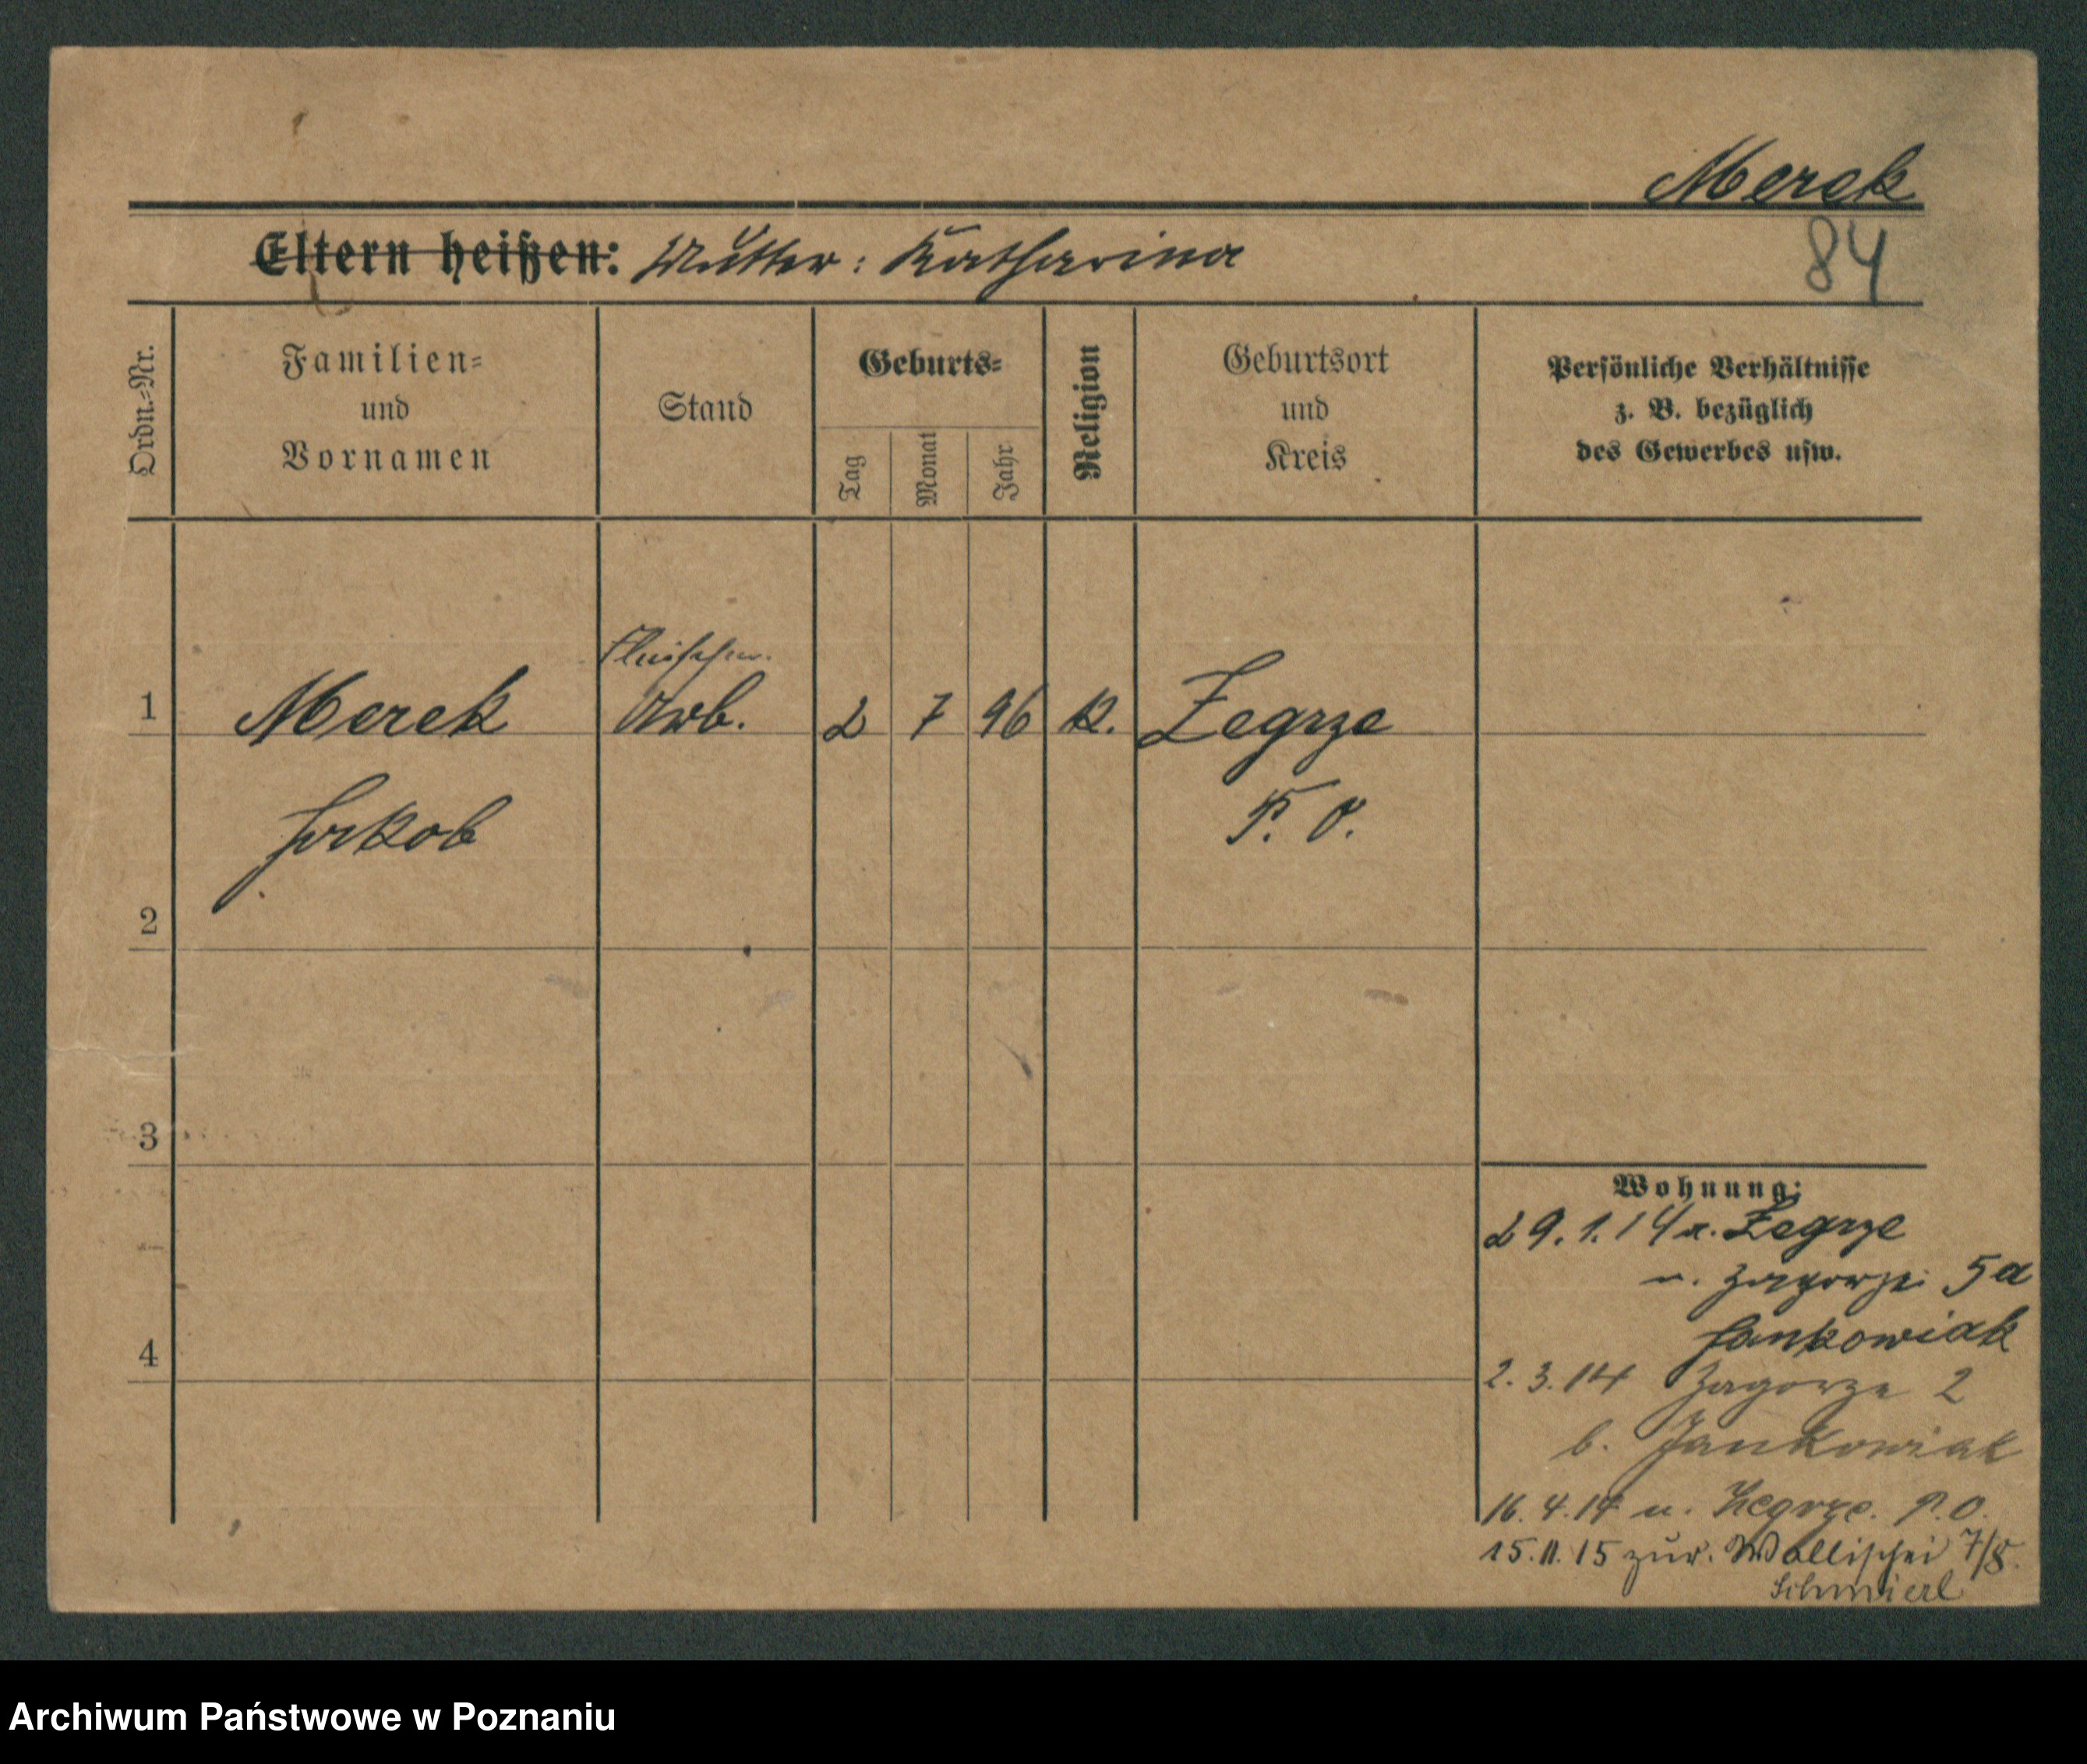 Merek
Eltern heißen: Mutter: Katharina
84
Ordn.-Nr.
Familien-
und
Vornamen
Stand
Geburts-
Tag
Monat
Jahr
Religion
Geburtsort
und
Kreis
Persönliche Verhältnisse
z. B. bezüglich
des Gewerbes usw.
1
Merek
Arb.
2
7
96
K.
Zegrze
Jakob
P. O.
2
3
4
Wohnung:
29.1.14 a. Zegrze
n. Zagorze 5a
Jankowiak
2.3.14 Zagorze 2
b. Jankowiak
16.4.14 n. Zegrze. P.O.
15.11.15 zur. Wallischei 7/8.
Schmierl
Archiwum Państwowe w Poznaniu